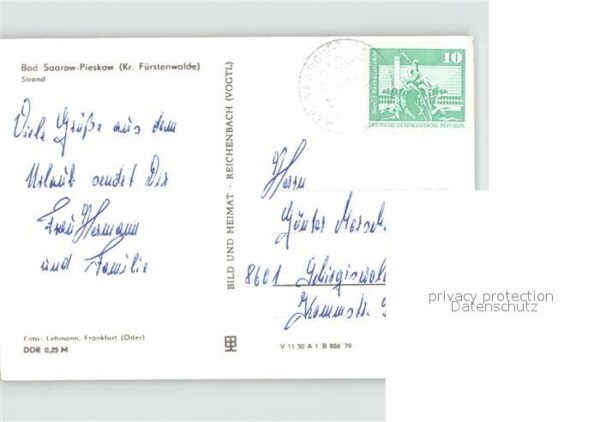 Bad Saarow-Pieskow (Kr. Fürstenwalde)
Strand
Viele Grüße aus dem
Urlaub sendet Dir
Frau Hermann
und Familie
Foto: Lehmann, Frankfurt (Oder)
DDR 0,25 M
BILD UND HEIMAT · REICHENBACH (VOGTL)
V 11 50 A 1 B 886/79
10
DEUTSCHE DEMOKRATISCHE REPUBLIK
Herrn
Günter
8601
privacy protection
Datenschutz